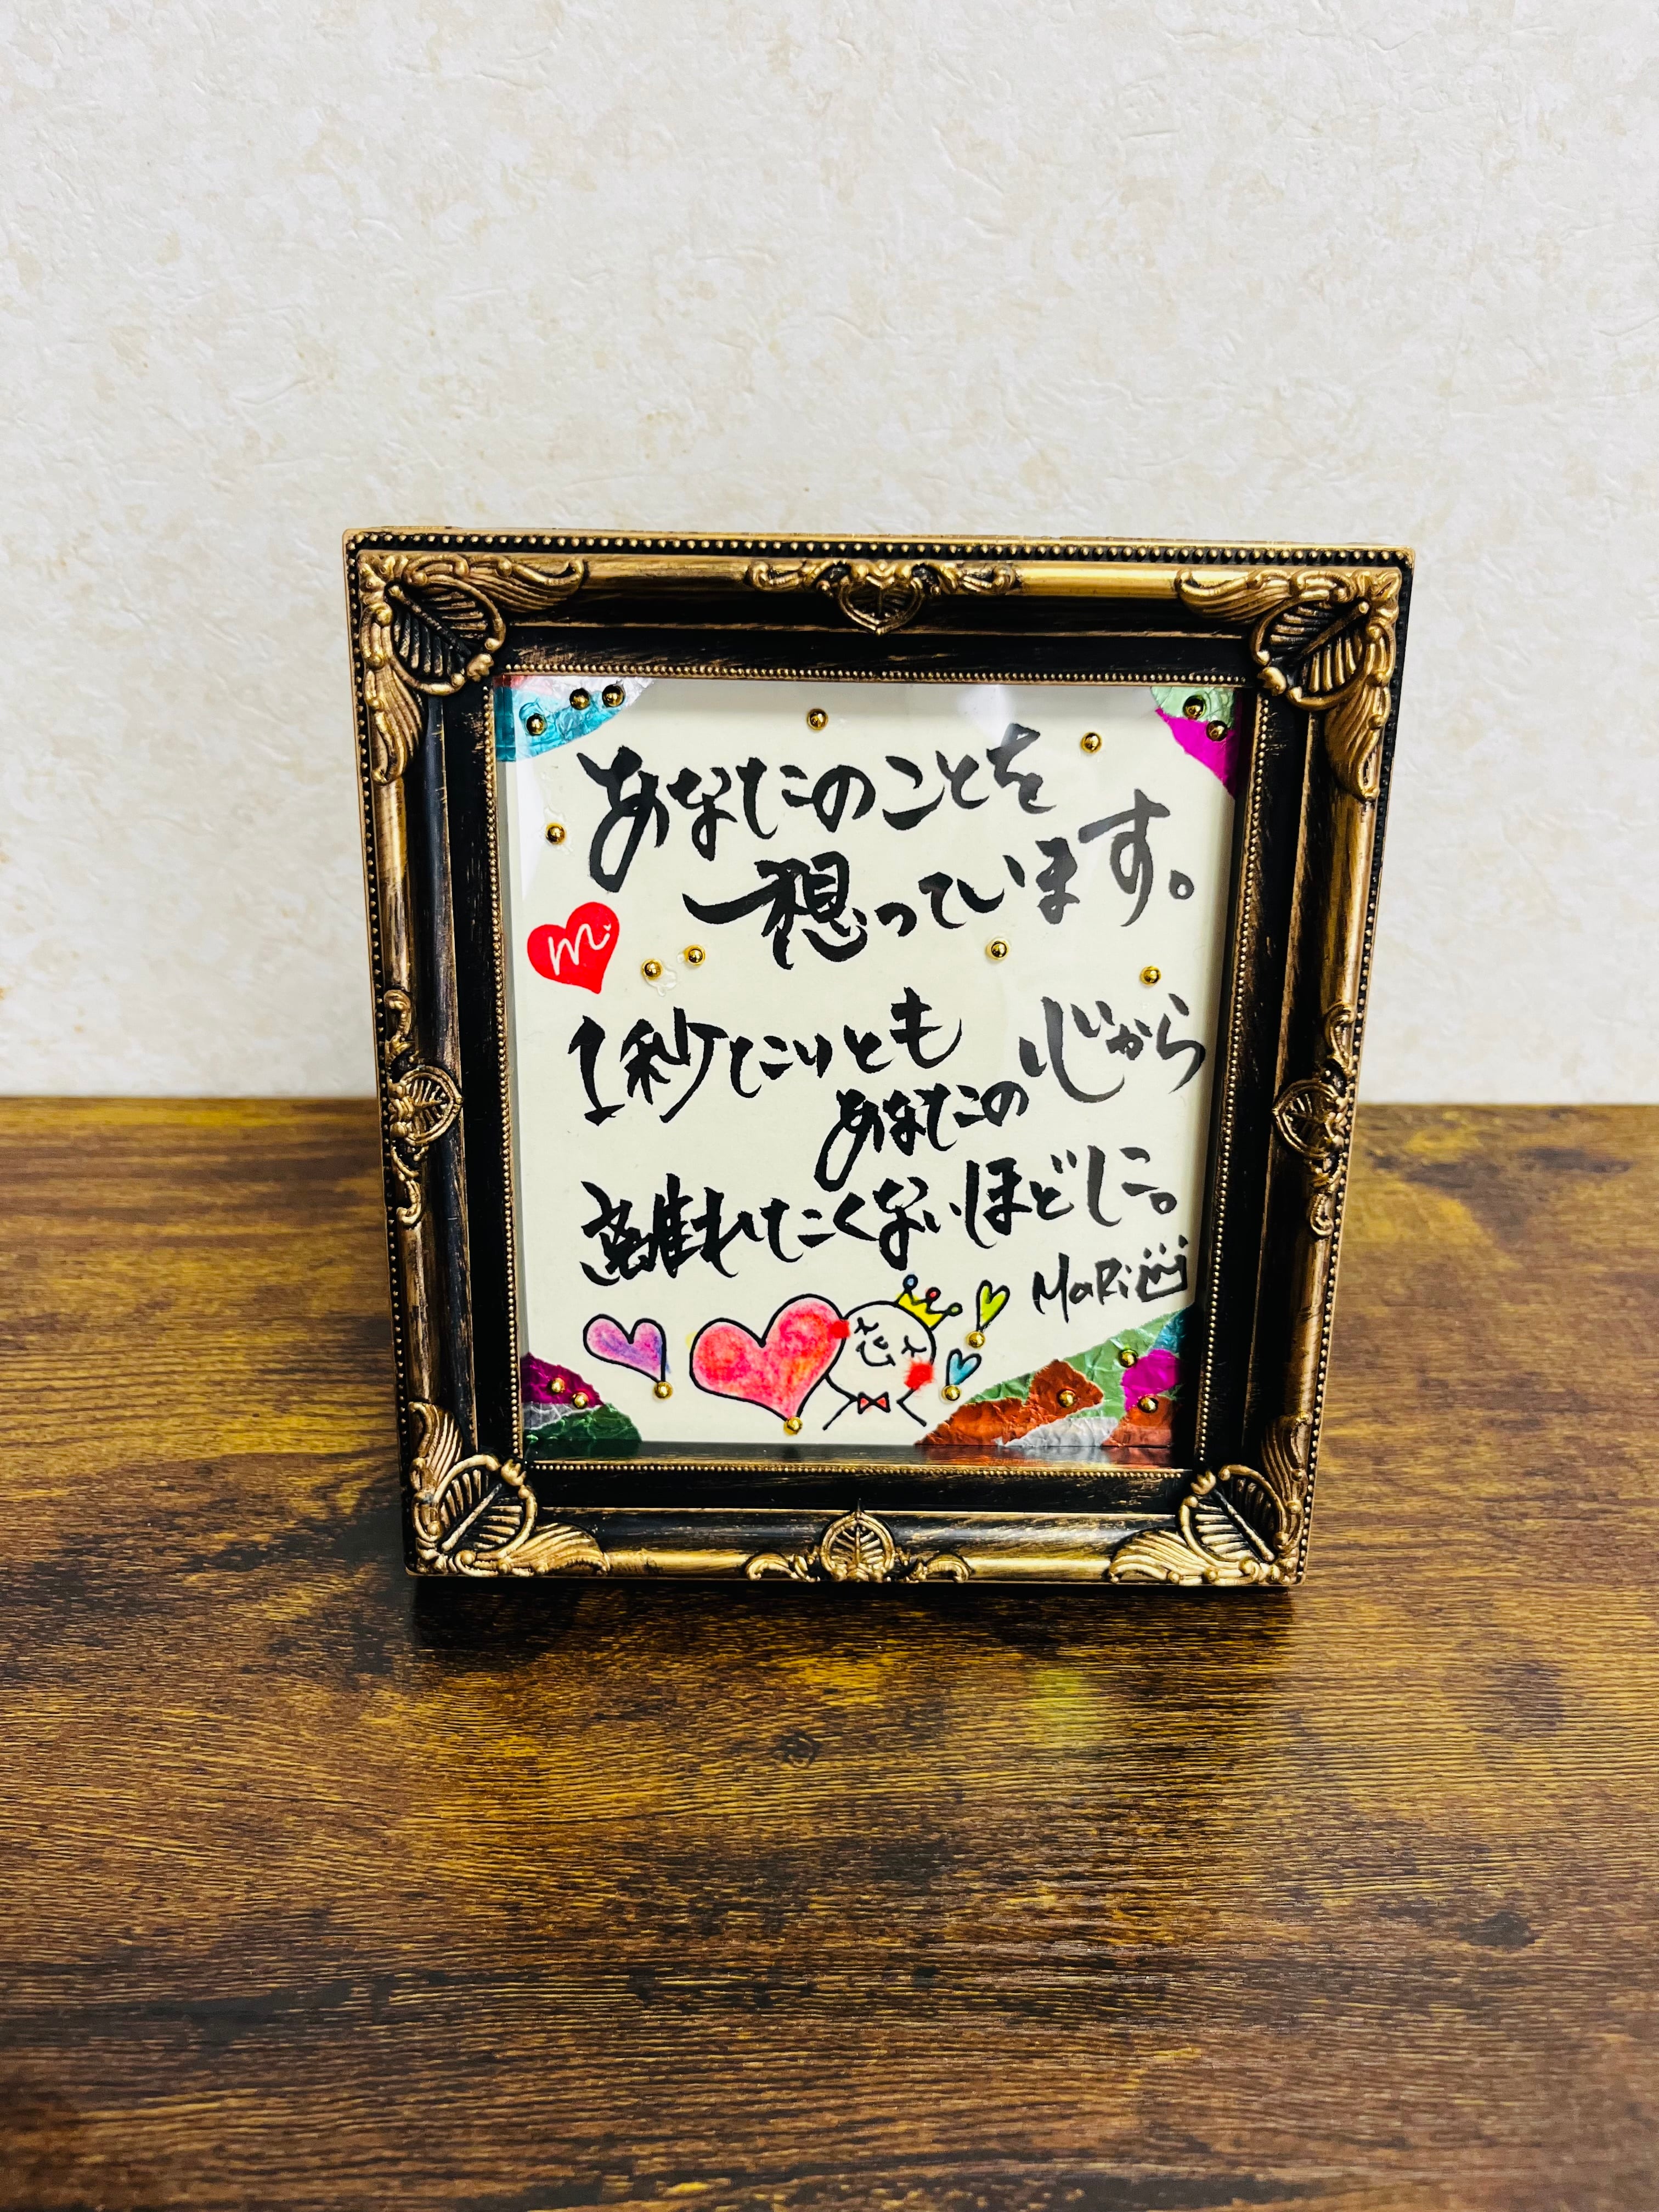 あなたのことを
想っています。
m
1秒たりとも
あなたの心から
離れたくないほどに。
MaRi